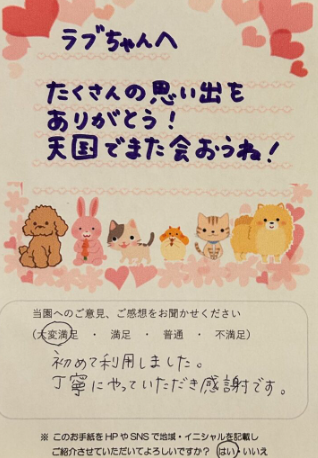 ラブちゃんへ
たくさんの思い出を
ありがとう!
天国でまた会おうね!
当園へのご意見、ご感想をお聞かせください
(大変満足 ・ 満足 ・ 普通 ・ 不満足)
初めて利用しました。
丁寧にやっていただき感謝です。
※ このお手紙をHPやSNSで地域・イニシャルを記載し
ご紹介させていただいてよろしいですか? はい・いいえ